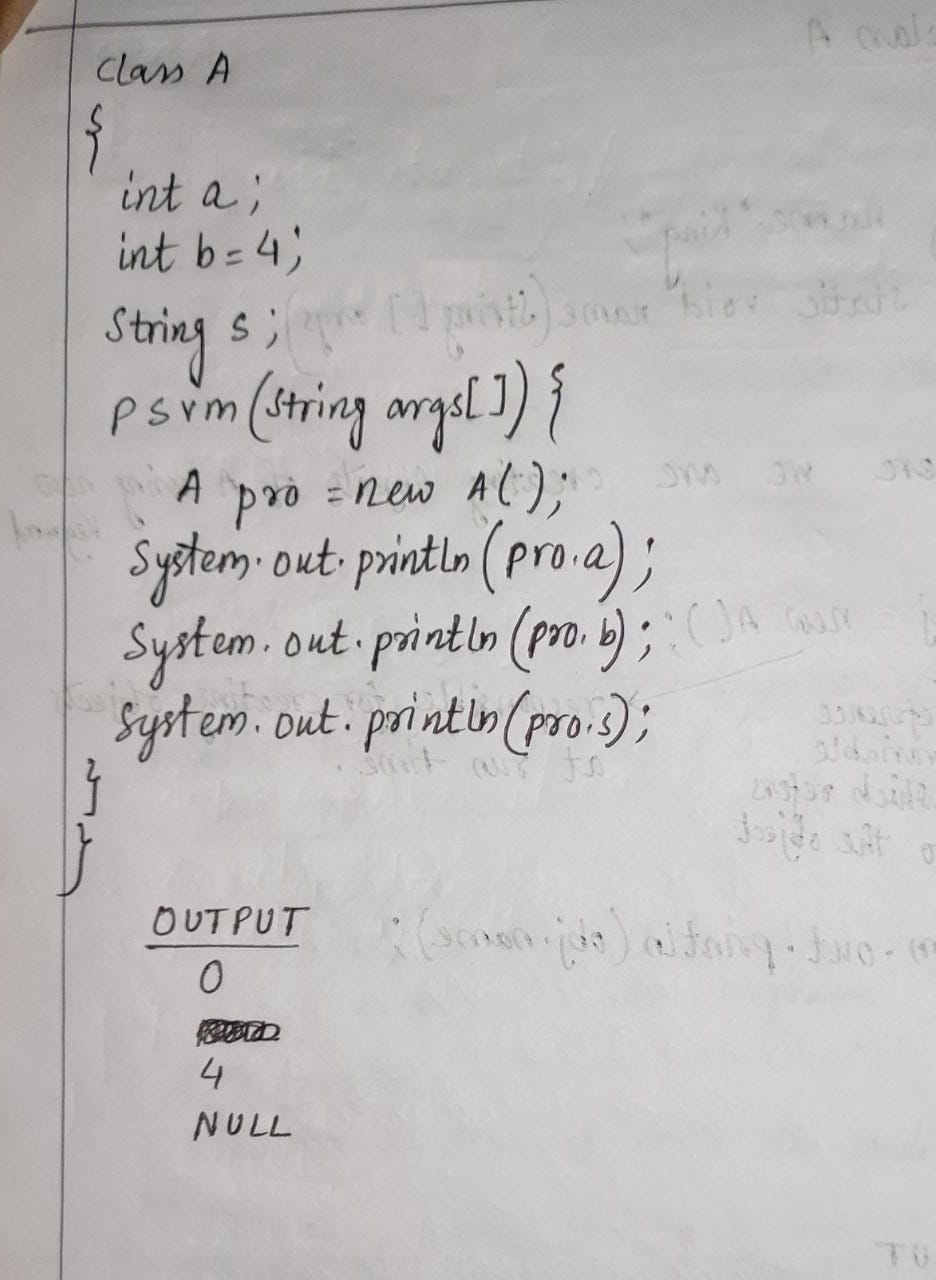 class A
{
int a;
int b=4;
String s;
psvm(String args[]) {
A pro = new A();
System.out.println(pro.a);
System.out.println(pro.b);
System.out.println(pro.s);
}
}
OUTPUT
0
4
NULL